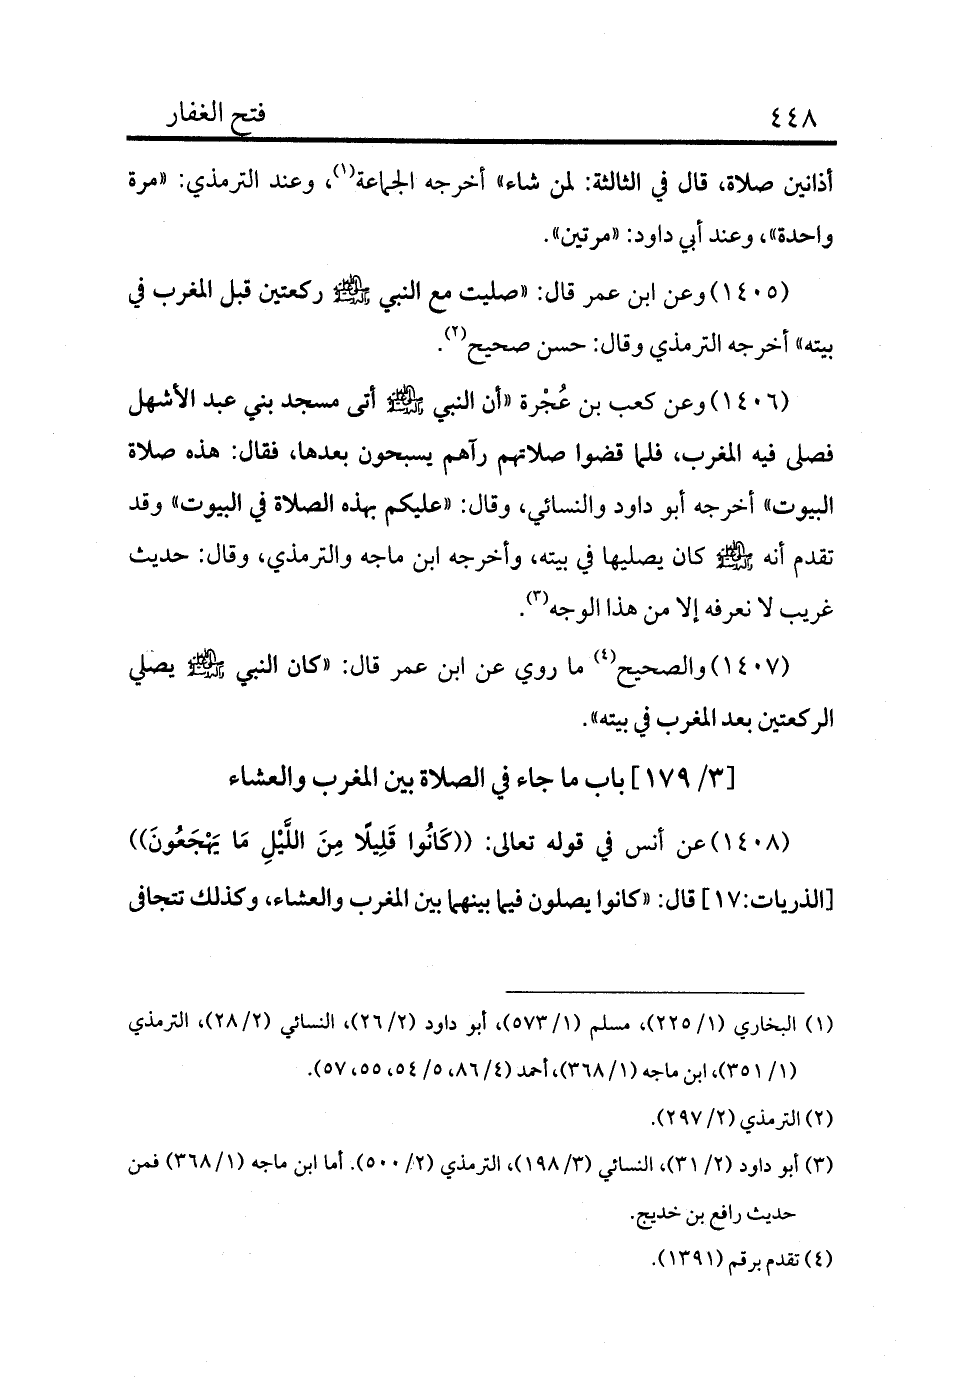 ٤٤٨ فتح الغفار
أذانين صلاة، قال في الثالثة: لمن شاء» أخرجه الجماعة(١)، وعند الترمذي: «مرة
واحدة»، وعند أبي داود: «مرتين».
(١٤٠٥) وعن ابن عمر قال: «صليت مع النبي ﷺ ركعتين قبل المغرب في
بيته» أخرجه الترمذي وقال: حسن صحيح(٢).
(١٤٠٦) وعن كعب بن عُجْرة «أن النبي ﷺ أتى مسجد بني عبد الأشهل
فصلى فيه المغرب، فلما قضوا صلاتهم رآهم يسبحون بعدها، فقال: هذه صلاة
البيوت» أخرجه أبو داود والنسائي، وقال: «عليكم بهذه الصلاة في البيوت» وقد
تقدم أنه ﷺ كان يصليها في بيته، وأخرجه ابن ماجه والترمذي، وقال: حديث
غريب لا نعرفه إلا من هذا الوجه(٣).
(١٤٠٧) والصحيح(٤) ما روي عن ابن عمر قال: «كان النبي ﷺ يصلي
الركعتين بعد المغرب في بيته».
[٣/ ١٧٩] باب ما جاء في الصلاة بين المغرب والعشاء
(١٤٠٨) عن أنس في قوله تعالى: ((كَانُوا قَلِيلًا مِنَ اللَّيْلِ مَا يَهْجَعُونَ))
[الذريات:١٧] قال: «كانوا يصلون فيما بينهما بين المغرب والعشاء، وكذلك تتجافى
(١) البخاري (١/ ٢٢٥)، مسلم (١/ ٥٧٣)، أبو داود (٢/ ٢٦)، النسائي (٢/ ٢٨)، الترمذي
(١/ ٣٥١)، ابن ماجه (١/ ٣٦٨)، أحمد (٤/ ٨٦، ٥/ ٥٤، ٥٥، ٥٧).
(٢) الترمذي (٢/ ٢٩٧).
(٣) أبو داود (٢/ ٣١)، النسائي (٣/ ١٩٨)، الترمذي (٢/ ٥٠٠). أما ابن ماجه (١/ ٣٦٨) فمن
حديث رافع بن خديج.
(٤) تقدم برقم (١٣٩١).